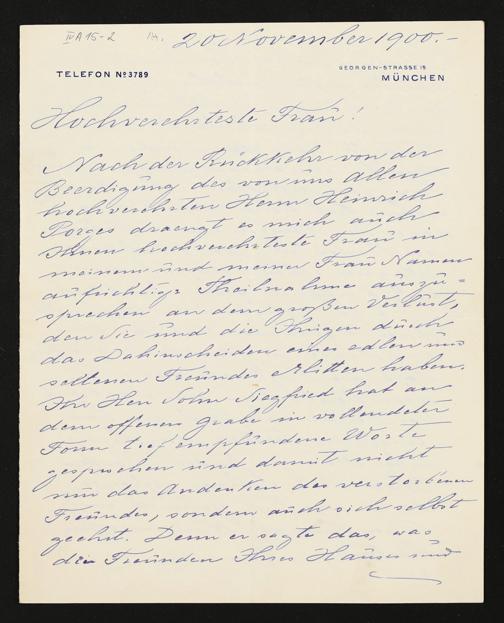 IV A 15-2 14. 20 November 1900.-
TELEFON No 3789
GEORGEN-STRASSE 15
MÜNCHEN
Hochverehrteste Frau!
Nach der Rückkehr von der
Beerdigung des von uns Allen
hochverehrten Herrn Heinrich
Porges draengt es mich auch
Ihnen hochverehrteste Frau in
meinem und meiner Frau Namen
aufrichtige Theilnahme auszu=
sprechen an dem großen Verlust,
den Sie und die Ihrigen durch
das Dahinscheiden eines edlen und
seltenen Freundes erlitten haben.
Ihr Herr Sohn Siegfried hat an
dem offenen Grabe in vollendeter
Form tief empfundene Worte
gesprochen und damit nicht
nur das Andenken des verstorbenen
Freundes, sondern auch sich selbst
geehrt. Denn er sagte das, was
die Freunden Ihres Hauses und